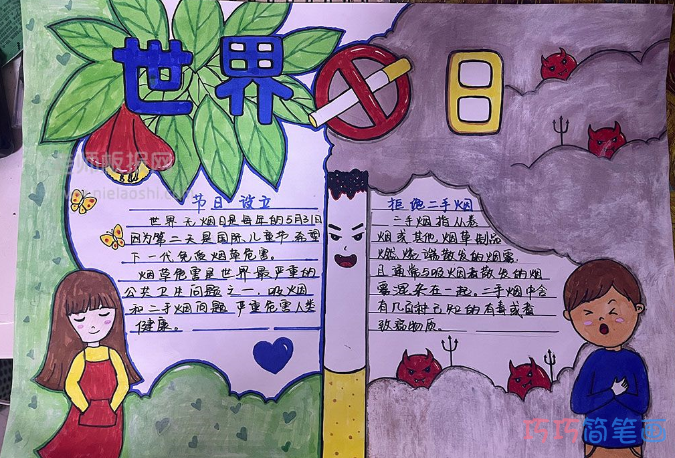 世界日
老师板报网
www.nielaoshi.com
节日设立
世界无烟日是每年的5月31日
因为第二天是国际儿童节希望
下一代免受烟草危害。
烟草危害是世界最严重的
公共卫生问题之一,吸烟
和二手烟问题严重危害人类
健康。
拒绝二手烟
二手烟指从卷
烟或其他烟草制品
燃烧端散发的烟雾,
且通常与吸烟者散发的烟
雾混杂在一起。二手烟中含
有几百种已知的有毒或者
致癌物质。
巧巧简笔画